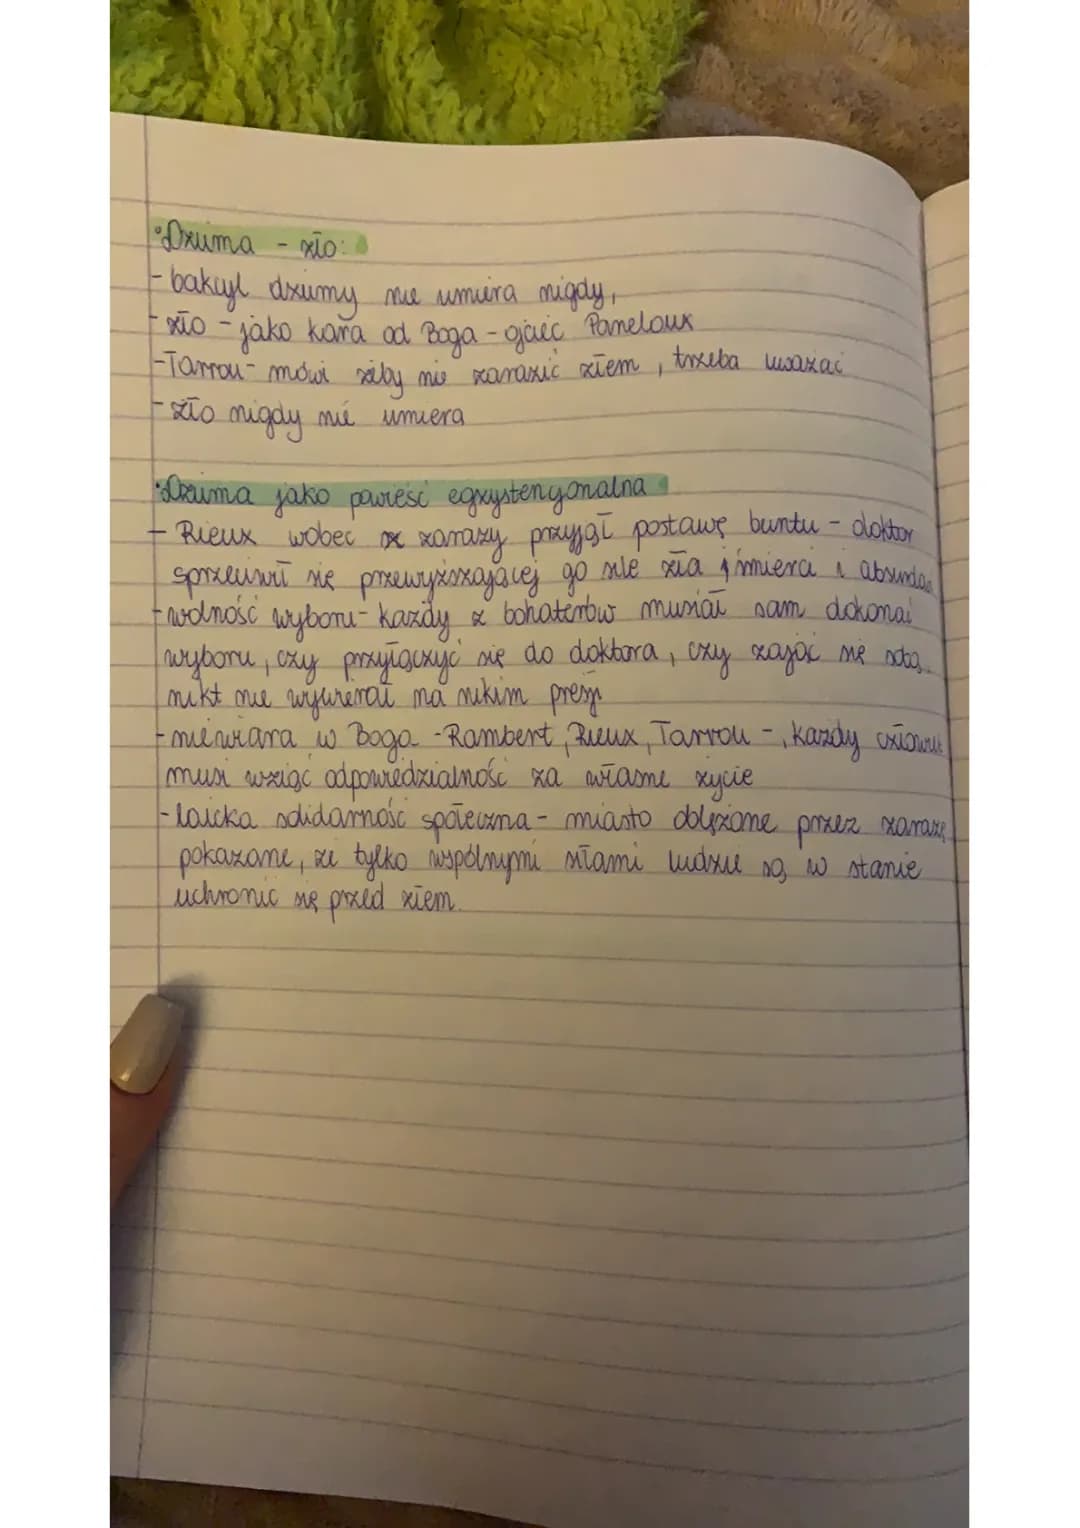 •Dżuma - zło:
- bakcyl dżumy nie umiera nigdy,
- zło - jako kara od Boga - ojciec Paneloux
- Tarrou - mówi żeby nie zarazić złem, trzeba uważać
- zło nigdy nie umiera
•Dżuma jako powieść egzystencjonalna
- Rieux wobec zarazy przyjął postawę buntu - doktor
sprzeciwił się przewyższającej go sile zła śmierci i absurdu
- wolność wyboru - każdy z bohaterów musiał sam dokonać
wyboru, czy przyłączyć się do doktora, czy zająć się sobą
nikt nie wywierał na nikim presji
- niewiara w Boga - Rambert, Rieux, Tarrou -, każdy człowiek
musi wziąć odpowiedzialność za własne życie
- laicka solidarność społeczna - miasto oblężone przez zarazę
pokazane, że tylko wspólnymi siłami ludzie są w stanie
uchronić się przed złem.